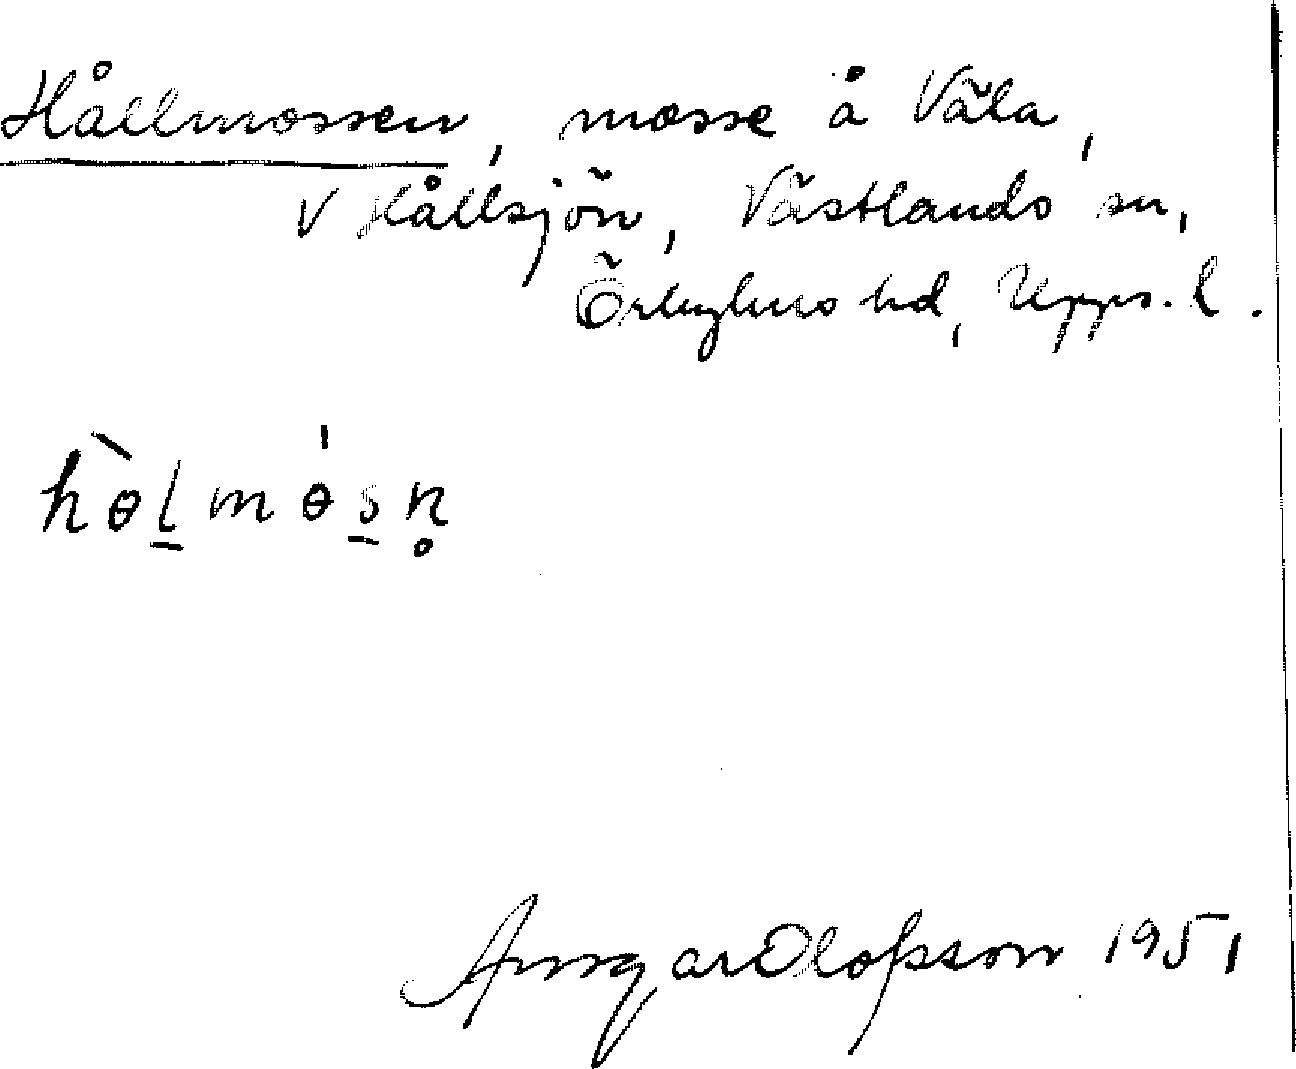 Hållmossen, mosse å Väla,
V Hållsjön, Västlands sn,
Örbyhus hd, Upps. l.
hòl̠mós̠n̥
Ansgar Olofsson 1951